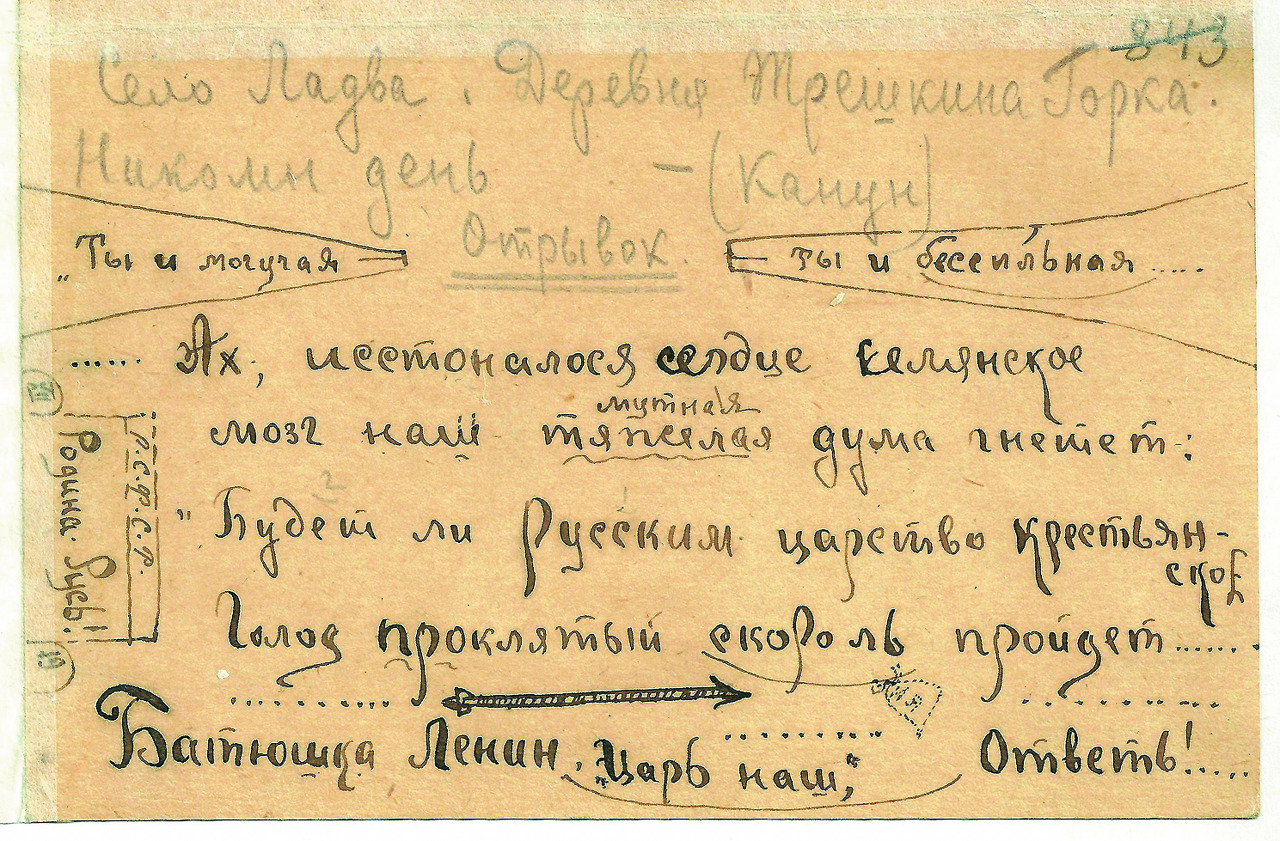 843
Село Ладва. Деревня Трешкина Горка.
Николин день — (Канун)
Отрывок.
„Ты и могучая — — ты и бессильная.....
...... Ах, исстоналося сердце селянское
мутная
мозг наш тяжелая дума гнетет:
"Будет ли Русским царство крестьян-
ское
Голод проклятый скороль пройдет......
Батюшка Ленин, „Царь наш", Ответь!.....
Р.С.Ф.С.Р.
Родина Русь!
VII
19